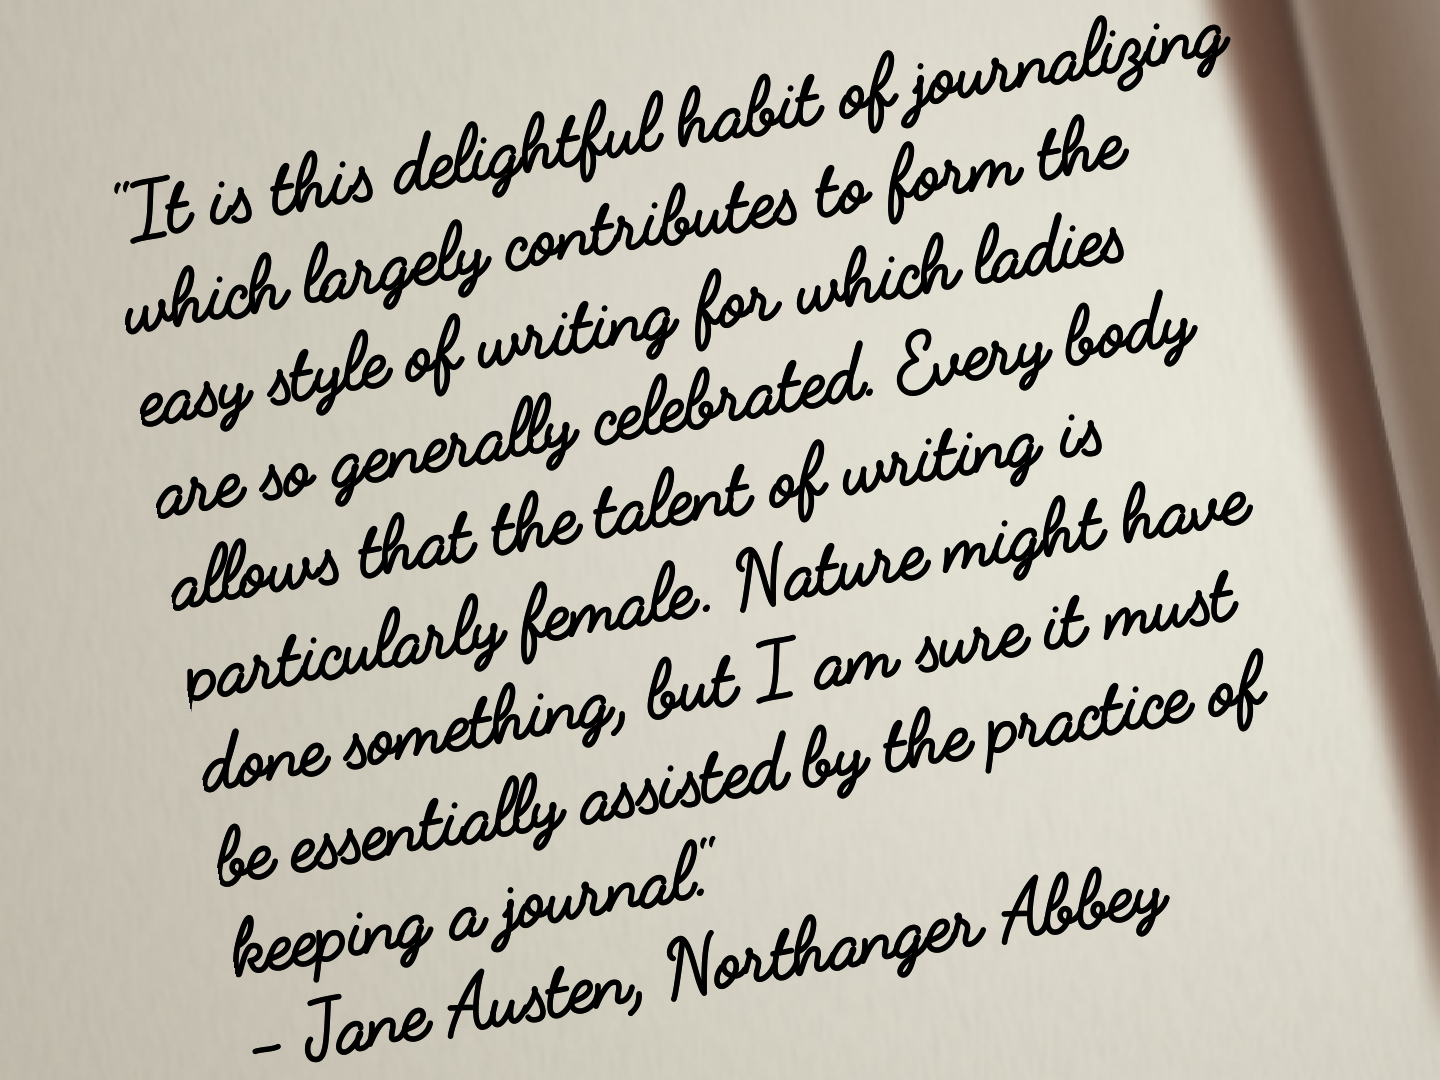 "It is this delightful habit of journalizing
which largely contributes to form the
easy style of writing for which ladies
are so generally celebrated. Every body
allows that the talent of writing is
particularly female. Nature might have
done something, but I am sure it must
be essentially assisted by the practice of
keeping a journal."
- Jane Austen, Northanger Abbey